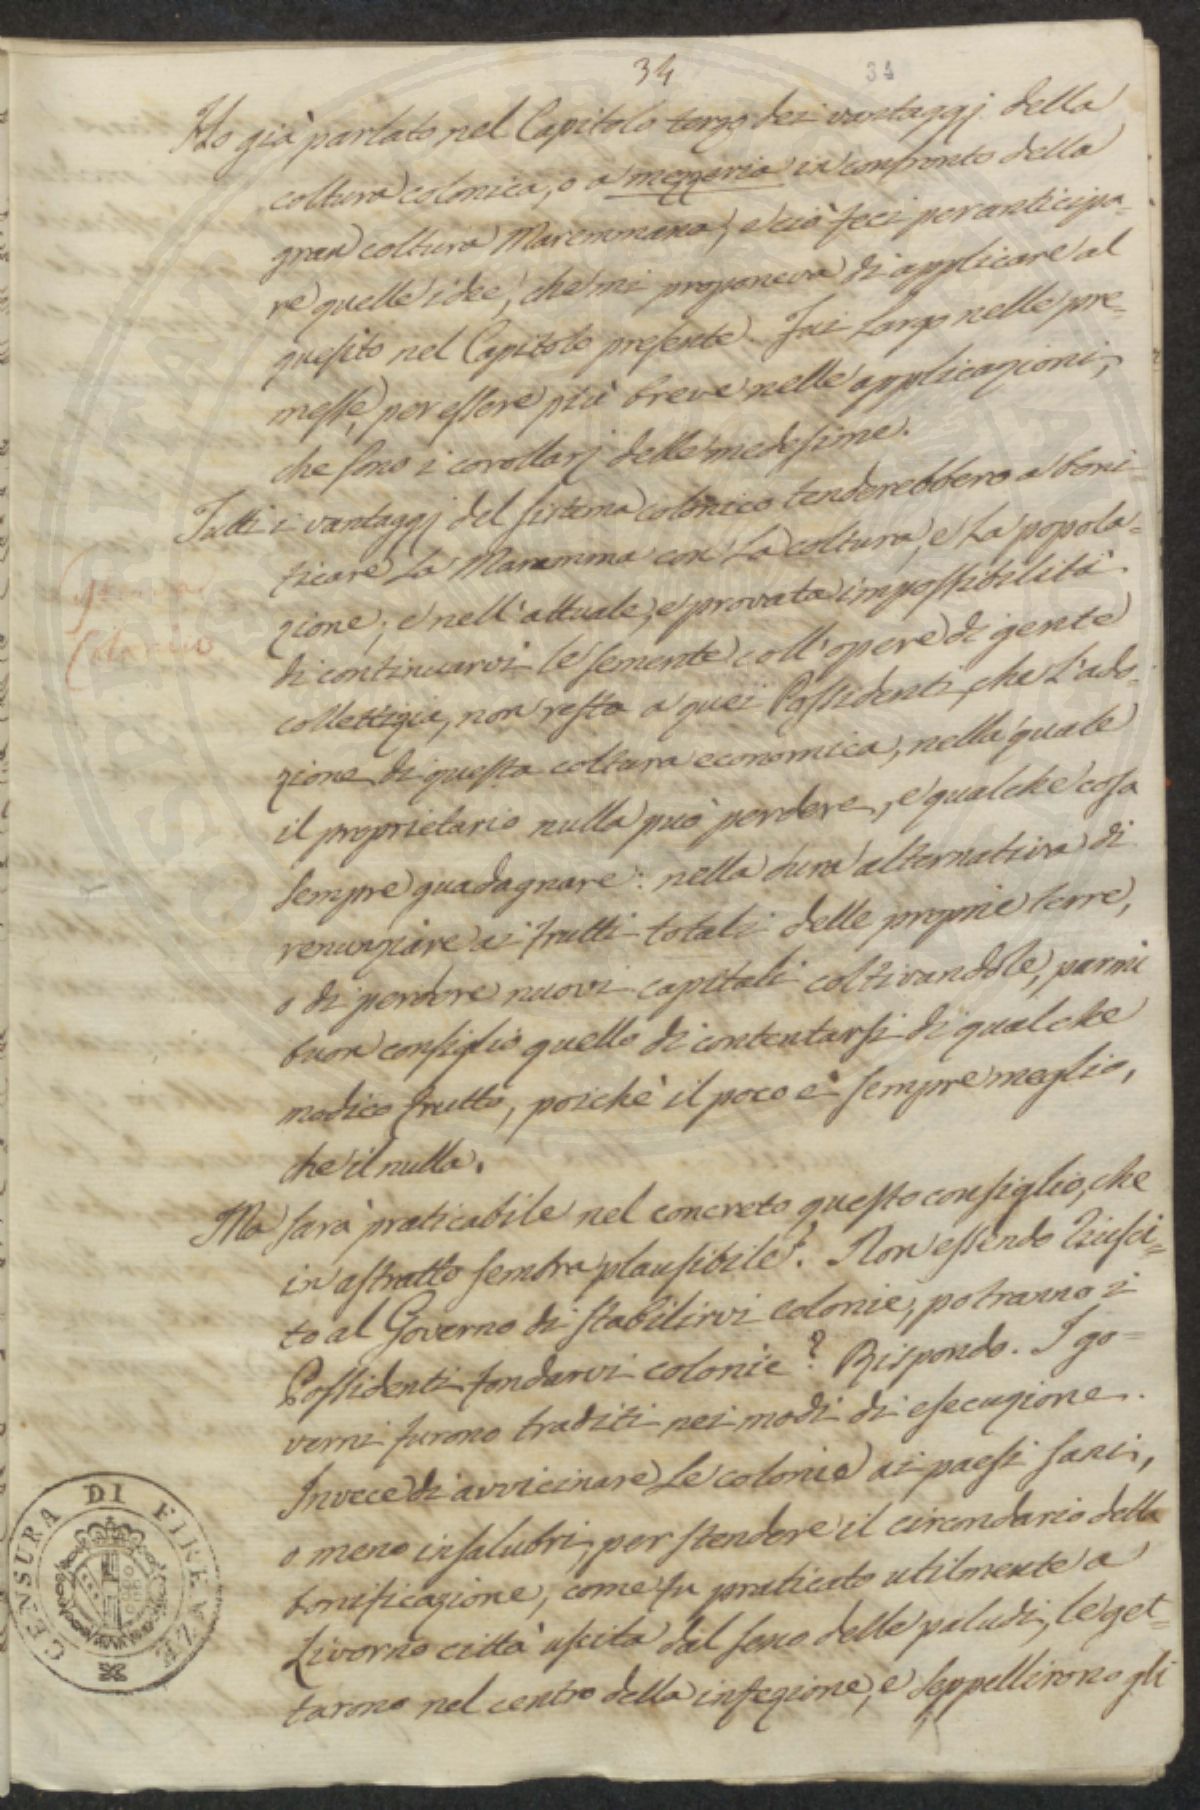 34
34
Ho già parlato nel Capitolo terzo dei vantaggj della
coltura colonica, o a mezzeria in confronto della
gran coltura Maremmana, e ciò feci per anticipa-
re quelle idee, che mi proponeva di applicare al
quesito nel Capitolo presente. Fui largo nelle pre-
messe, per essere più breve nelle applicazioni,
che sono i corollarj delle medesime.
Tutti i vantaggj del sistema colonico tenderebbero a boni-
ficare la Maremma con la coltura, e la popola-
zione; e nell'attuale, e provata impossibilità
Sistema
Colonico
di continuarvi le semente coll'opere di gente
collettizia, non resta a quei Possidenti, che l'ado-
zione di questa coltura economica, nella quale
il proprietario nulla può perdere, e qualche cosa
sempre guadagnare: nella dura alternativa di
renunziare ai frutti totali delle proprie terre,
o di perdere nuovi capitali coltivandole, parmi
buon consiglio quello di contentarsi di qualche
modico frutto, poichè il poco è sempre meglio,
che il nulla.
Ma sarà praticabile nel concreto questo consiglio, che
in astratto sembra plausibile? Non essendo riusci-
to al Governo di stabilirvi colonie, potranno i
Possidenti fondarvi colonie? Rispondo. I go-
verni furono traditi nei modi di esecuzione.
Invece di avvicinare le colonie ai paesi sani,
o meno insalubri, per stendere il circondario della
bonificazione, come fu praticato utilmente a
Livorno città uscita dal seno delle paludi, le get-
tarono nel centro della infezione, e seppellirono gli
CENSURA DI FIRENZE